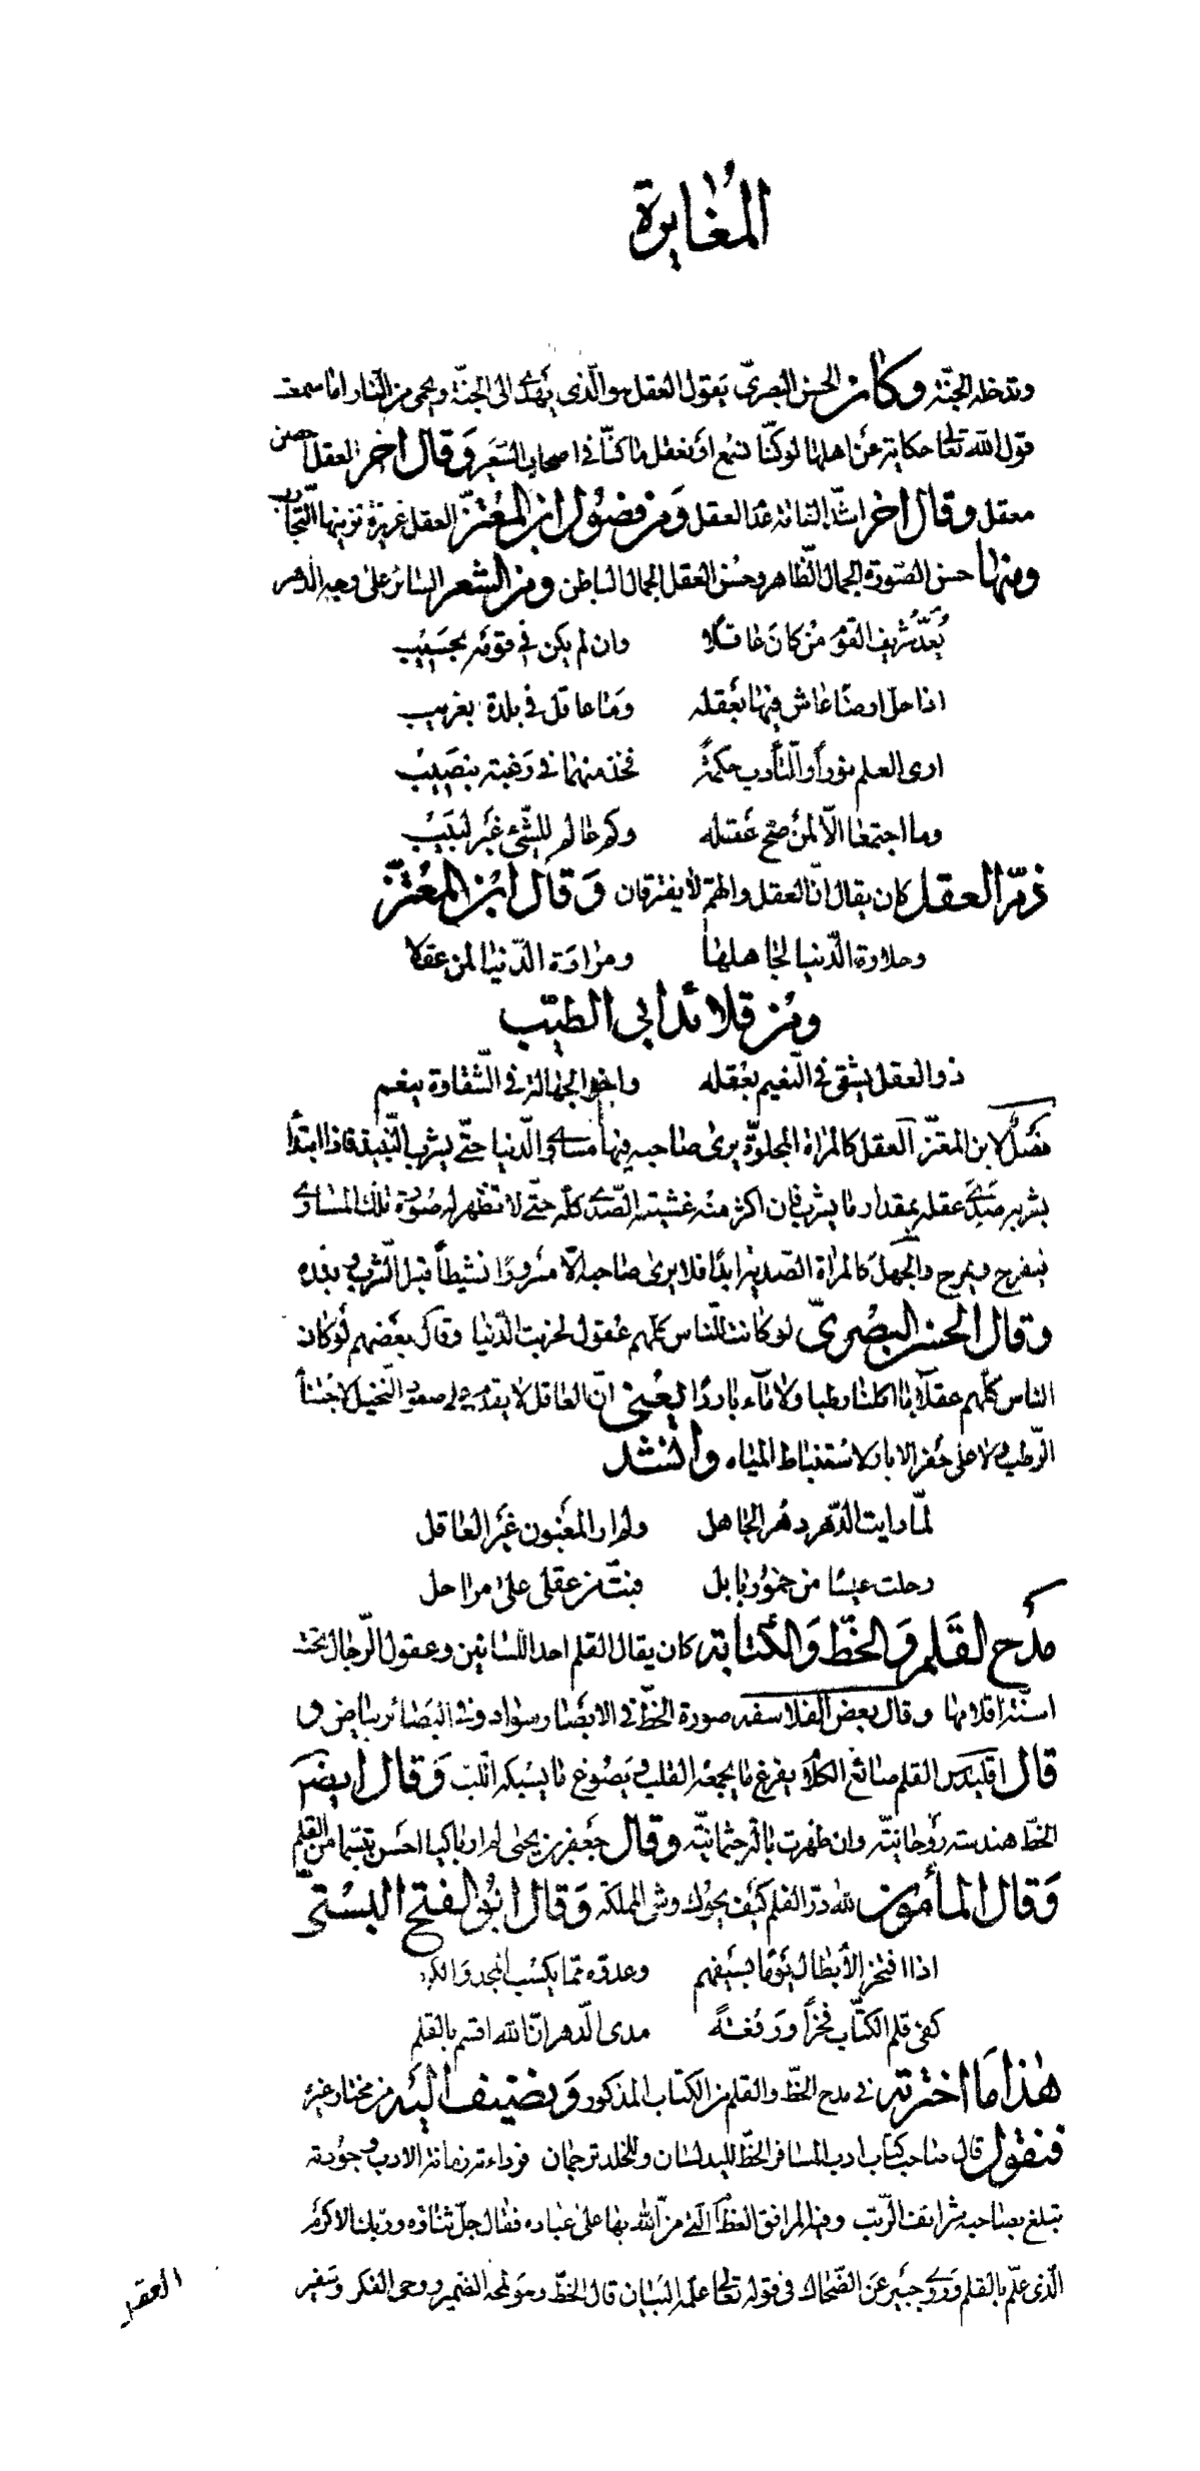 المُغايرة
وتدخله الجنّة وكان الحسن البصريّ يقول العقل هو الّذي يهدى الى الجنّة ويحمى من النار اما سمعت
قول الله تعالى حكاية عن اهلها لو كنّا نسمع او نعقل ما كنّا فى اصحاب السّعير وقال اخر العقل حصن
معقل وقال اخر اشدّ الفاقة عدم العقل ومن فصول ابن المعتزّ العقل غريزة تزينها التّجارب
ومنها حسن الصّورة الجمال الظّاهر وحسن العقل الجمال الباطن ومن الشعر السائر على وجه الدهر
يُعَدّ شريف القوم من كان عاقلا وان لم يكن فى قومه بحسيب
اذا حل ارضا عاش فيها بعقله وما عاقل فى بلدة بغريب
ارى العلم نوراً والتّأدب حكمةً فخذ منهما فى رغبة بنصيب
وما اجتمعا الّا لمن صحّ عقله وكم عالم للشّىء غير لبيب
ذمّ العقل كان يقال انّ العقل والهمّ لا يفترقان وقال ابن المعتزّ
وحلاوة الدّنيا لجاهلها ومرارة الدّنيا لمن عقلا
ومن قلائد ابى الطيّب
ذو العقل يشقى فى النعيم بعقله واخو الجهالة فى الشّقاوة ينعم
فصل لابن المعتزّ العقل كالمرآة المجلوّة يرى صاحبه فيها مساوى الدّنيا حتّى يشرب النّبيذ فاذا ابتدأ
بشربه صدى عقله بمقدار ما يشرب فان اكثر منه غشيته الصّدى كله حتّى لا تظهر له صورة تلك المساوى
فيفرح ويمرح والجهل كالمراة الصدية ابدا فلا يرى صاحبه الّا مسرورًا نشيطاً قبل الشرب وبعده
وقال الحسن البصرىّ لو كانت للنّاس كلّهم عقول لخربت الدّنيا وقال بعضهم لو كان
الناس كلّهم عقلاء ما اكلنا رطبا ولا ماء باردًا يعنى انّ العاقل لا يقدم على صعود النّخيل لاجتناء
الرّطب ولا على حفر الابار لاستنباط المياه وانشد
لمّا رايت الدّهر دهر الجاهل ولم ار المغبون غير العاقل
رحلت عيسا من خمور بابل فبتّ من عقلى على مراحل
مدح القلم والخطّ والكتابة كان يقال القلم احد اللسانين وعقول الرّجال تحت
اسنّة اقلامها وقال بعض الفلاسفه صورة الخطّ فى الابصار سواد وفى البصائر بياض و
قال اقليدس القلم صائغ الكلام يفرغ ما يجمعه القلب ويصوغ ما يسبكه اللّب وقال ايضا
الخطّ هندسة روحانيّة وان ظهرت بآلة جثمانيّة وقال جعفر بن يحيى لم ار باكيا احسن تبسّما من القلم
وقال المأمون لله درّ القلم كيف يحوك وشى المملكة وقال ابو الفتح البستىّ
اذا افتخر الأبطال يومًا بسيفهم وعدّوه ممّا يكسب المجد والكرم
كفى قلم الكتّاب فخراً ورفعةً مدى الدّهر انّ الله اقسم بالقلم
هذا ما اخترته فى مدح الخطّ والقلم من الكتاب المذكور ونضيف اليه من مختار غيره
فنقول قال صاحب كتاب ادب المسافر الخطّ لليد لسان وللخلد ترجمان فرداءته زمانة الادب وجودته
تبلغ بصاحبه شرائف الرّتب وفيه المرافق العظام الّتى منّ الله بها على عباده فقال جلّ ثناؤه وربّك الاكرم
الّذى علّم بالقلم وروى جبير عن الضّحاك فى قوله تعالى علّمه البيان قال الخطّ وهو لمحة الضمير ووحى الفكر وسفير
العقل